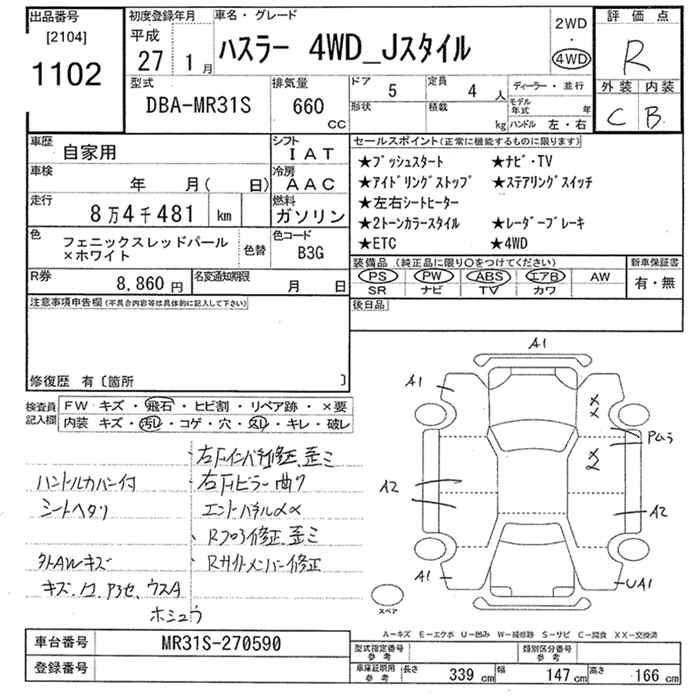 出品番号
[2104]
1102
初度登録年月
平成
27 1月
車名・グレード
ハスラー 4WD_Jスタイル
2WD
・
4WD
評価点
R
外装 内装
C B
型式
DBA-MR31S
排気量
660
CC
ドア 5
定員 4人
形状
積載 kg
ディーラー・並行
モデル年式 年
ハンドル 左・右
車歴
自家用
シフト
IAT
車検
年 月( 日)
冷房
AAC
走行
8万4千481 km
燃料
ガソリン
色
フェニックスレッドパール
×ホワイト
色替
色コード
B3G
R券
8,860円
名変通知期限
月 日
セールスポイント(正常に機能するものに限ります)
★プッシュスタート ★ナビ・TV
★アイドリングストップ ★ステアリングスイッチ
★左右シートヒーター
★2トーンカラースタイル ★レーダーブレーキ
★ETC ★4WD
装備品(純正品に限り○をつけてください)
PS PW ABS エアB AW
SR ナビ TV カワ
新車保証書
有・無
後日品
注意事項申告欄(不具合内容等は具体的に記入して下さい)
修復歴 有〔箇所 〕
検査員
記入欄
FW キズ・飛石・ヒビ割・リペア跡・×要
内装 キズ・汚レ・コゲ・穴・スレ・キレ・破レ
ハンドルカバー付
シートヘタリ
外AWキズ
・右Fインパネ修正、歪ミ
・右Fピラー曲ク
・Rフロア修正、歪ミ
・Rサイドメンバー修正
ホシュウ
A1
A1
A2
A1
A2
UA1
スペア
A-キズ E-エクボ U-凹み W-補修跡 S-サビ C-腐食 XX-交換済
車台番号
MR31S-270590
登録番号
型式指定番号
参考
類別区分番号
参考
車庫証明用
参考
長さ 339 cm
幅 147 cm
高さ 166 cm